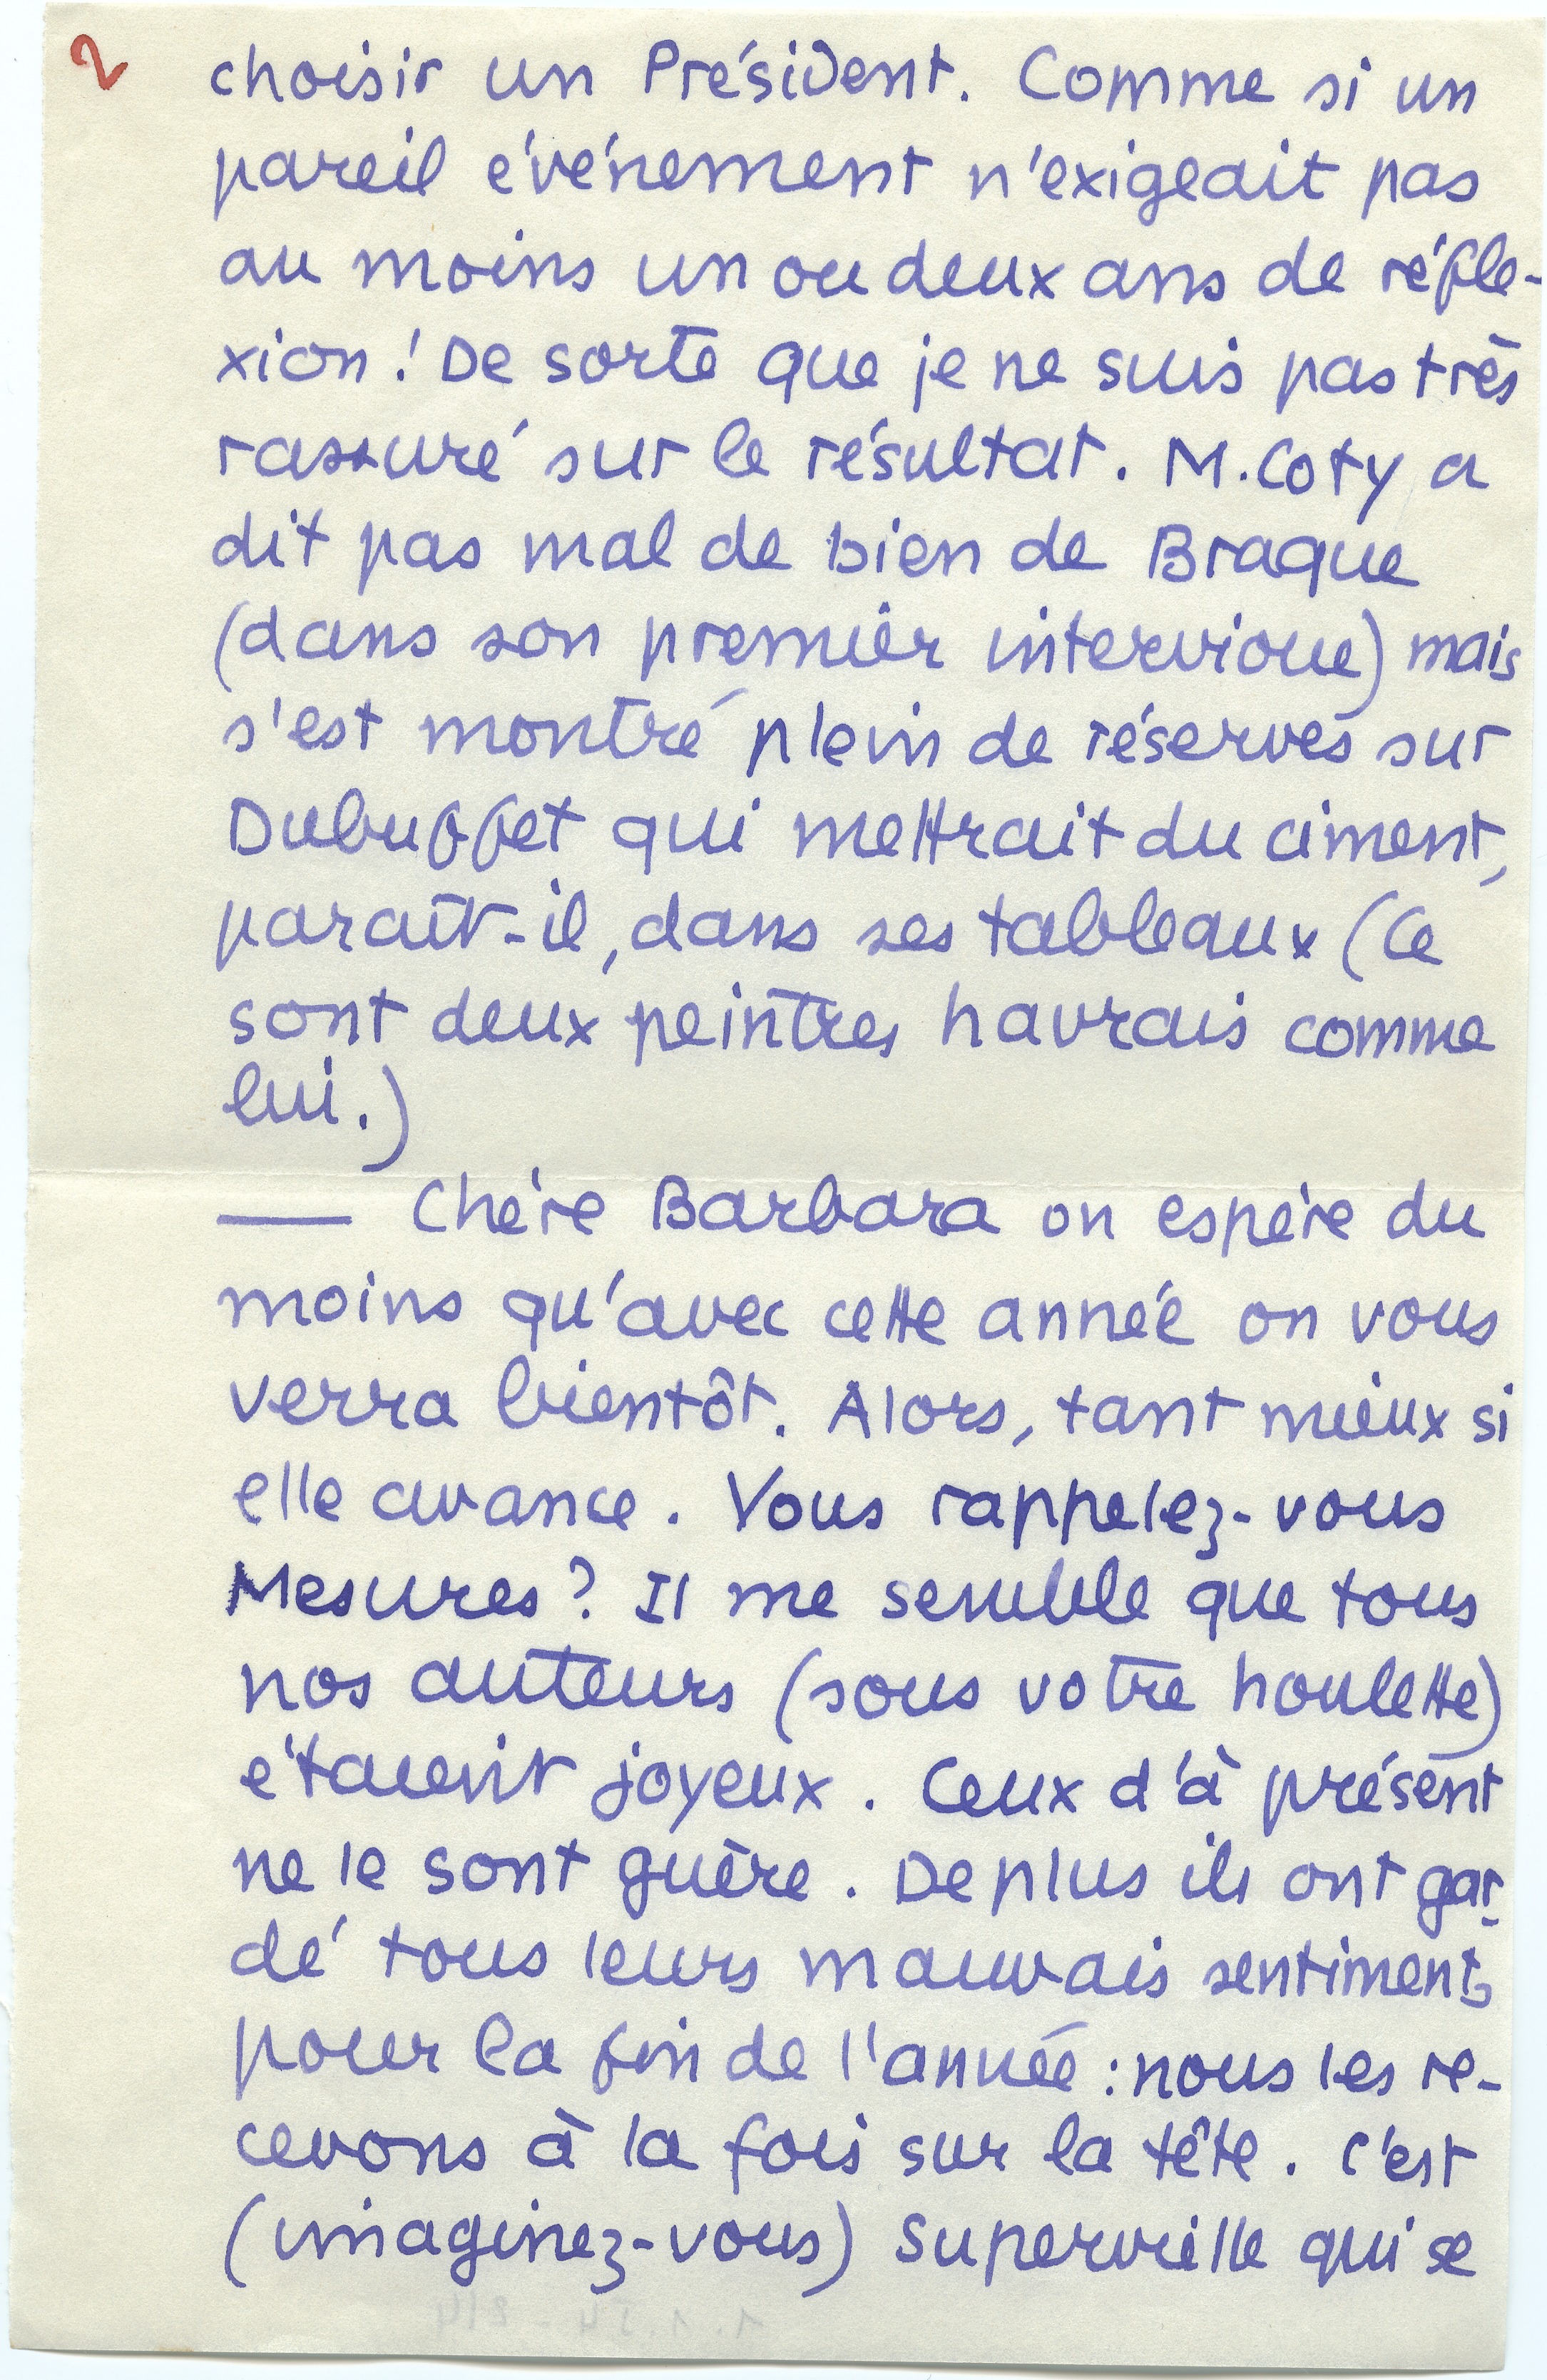 2
choisir un Président. Comme si un
pareil événement n'exigeait pas
au moins un ou deux ans de réfle-
xion! De sorte que je ne suis pas très
rassuré sur le résultat. M. Coty a
dit pas mal de bien de Braque
(dans son premier intervioue) mais
s'est montré plein de réserves sur
Dubuffet qui mettrait du ciment,
paraît-il, dans ses tableaux (Ce
sont deux peintres havrais comme
lui.)
— Chère Barbara on espère du
moins qu'avec cette année on vous
verra bientôt. Alors, tant mieux si
elle avance. Vous rappelez-vous
Mesures? Il me semble que tous
nos auteurs (sous votre houlette)
étaient joyeux. Ceux d'à présent
ne le sont guère. De plus ils ont gar-
dé tous leurs mauvais sentiments
pour la fin de l'année: nous les re-
cevons à la fois sur la tête. C'est
(imaginez-vous) Supervielle qui se
1.1.54 - 2/4